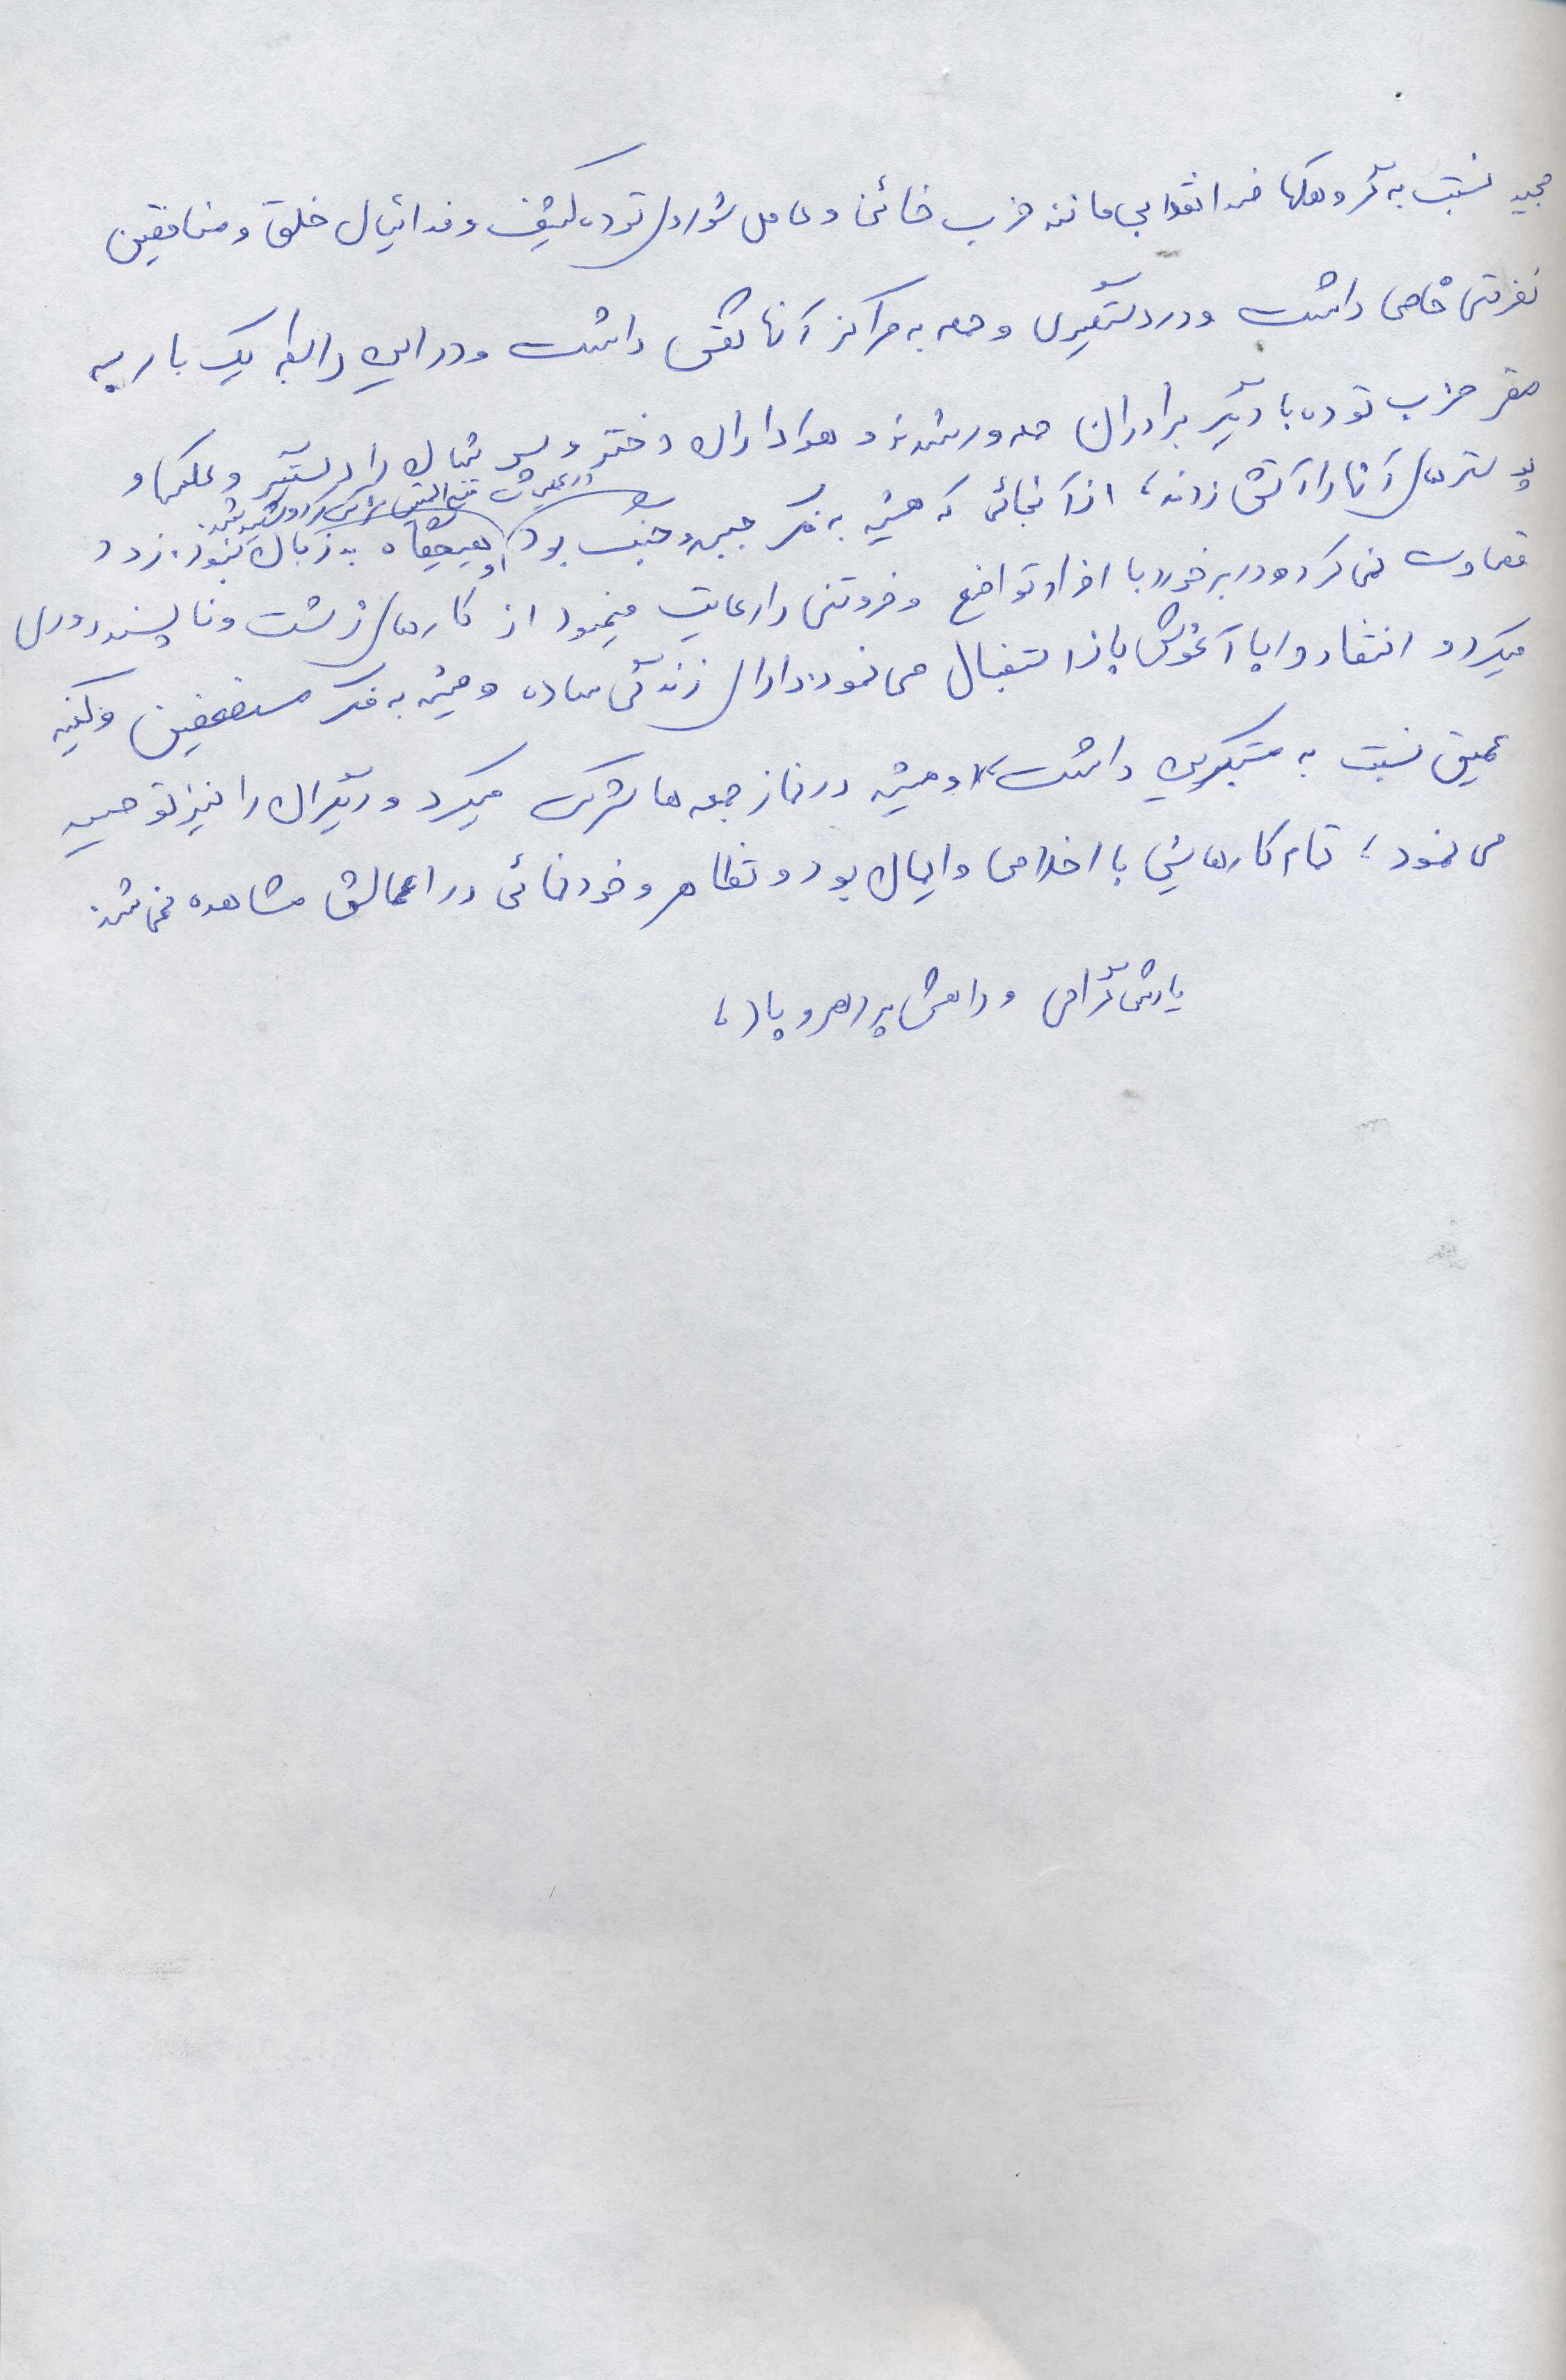 مجید نسبت به گروهکها ضدانقلابی مانند حزب خائن و عامل شوروی توده کثیف و فدائیان خلق و منافقین
نفرتی خاصی داشت و در دستگیری و حمله به مراکز آنها نقش داشت و در این رابطه یک بار به
مقر حزب توده با دیگر برادران حمله ور شدند و هواداران دختر و پسر شان را دستگیر و عکسها و
پوسترهای آنها را آتش زدند، از آنجائی که همیشه به فکر جبهه و جنگ بود
در عملیات فتح المبین شرکت کرد و شهید شد.
او هیچگاه بد زبان نبود. زود
قضاوت نمی کرد و در برخورد با افراد تواضع و فروتنی را رعایت مینمود از کارهای زشت و ناپسند دوری
میکرد و انتقاد را با آغوش باز استقبال می نمود. دارای زندگی ساده و همیشه به فکر مستضعفین و کینه
عمیق نسبت به مستکبرین داشت، و همیشه در نماز جمعه ها شرکت میکرد و دیگران را نیز توصیه
می نمود؛ تمام کارهایش با اخلاص و ایمان بود و تظاهر و خودنمائی در اعمالش مشاهده نمی شد.
یادش گرامی و راهش پر رهرو باد،